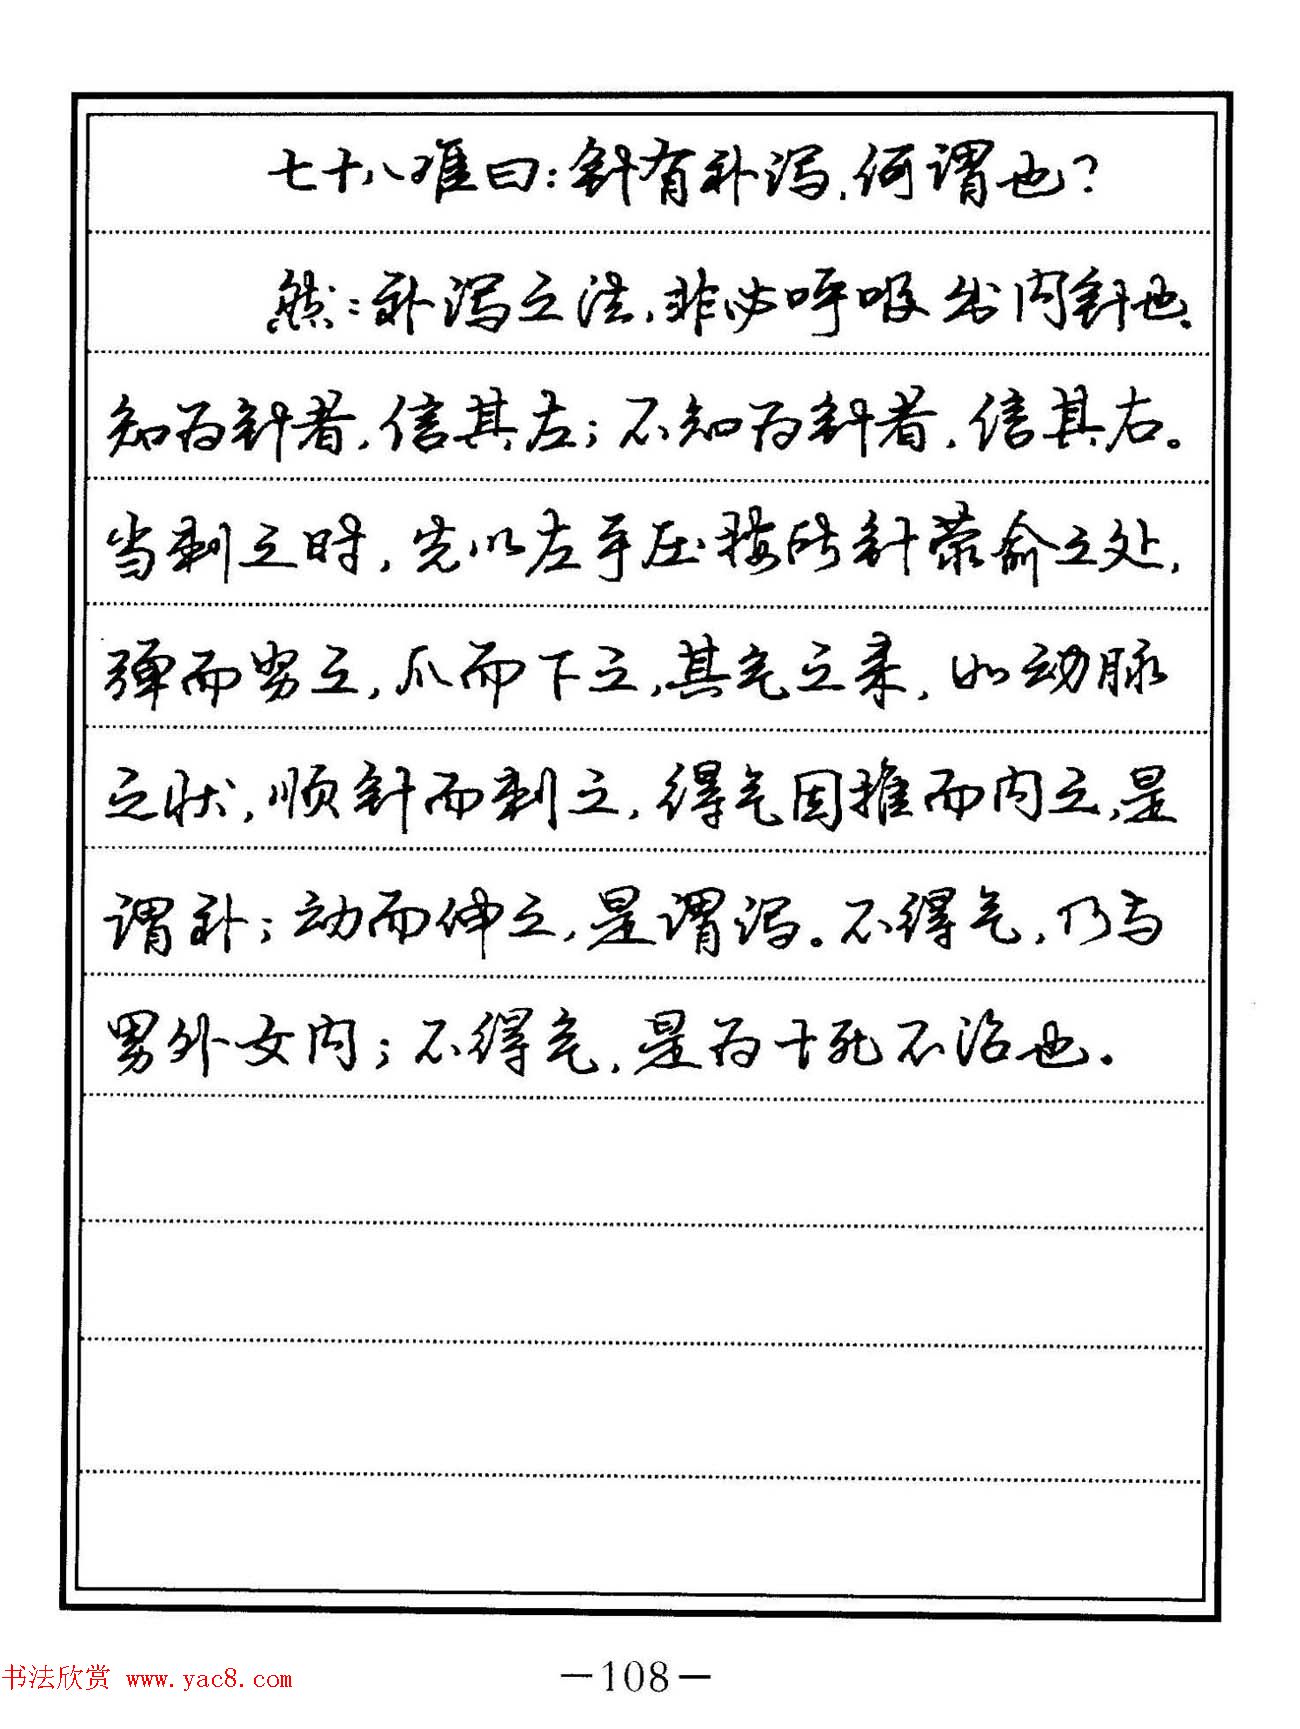 七十八难曰：针有补泻，何谓也？
然：补泻之法，非必呼吸出内针也。
知为针者，信其左；不知为针者，信其右。
当刺之时，先以左手压按所针荥俞之处，
弹而努之，爪而下之，其气之来，如动脉
之状，顺针而刺之，得气因推而内之，是
谓补；动而伸之，是谓泻。不得气，乃与
男外女内；不得气，是为十死不治也。
书法欣赏 www.yac8.com
—108—